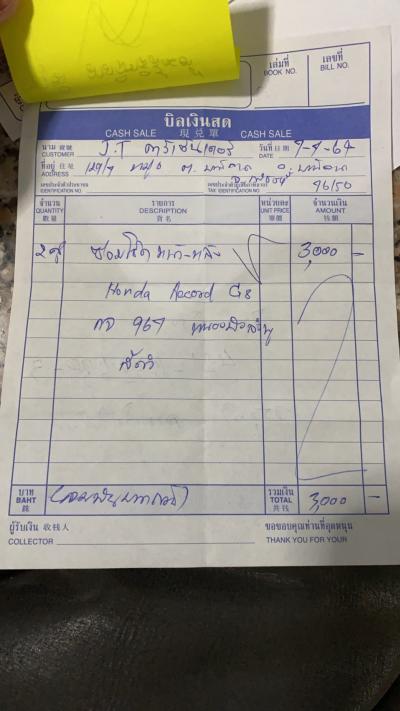 เล่มที่
BOOK NO.
เลขที่
BILL NO.
บิลเงินสด
CASH SALE 現兌單 CASH SALE
นาม 寶號 J.T คาร์เซ็นเตอร์ วันที่ 日期 7-4-64
CUSTOMER DATE
ที่อยู่ 住址 129/7
ADDRESS
เลขประจำตัวประชาชน
IDENTIFICATION NO. TAX IDENTIFICATION NO. 96150
จำนวน รายการ หน่วยละ จำนวนเงิน
QUANTITY DESCRIPTION UNIT PRICE AMOUNT
數量 貨名 單價 錢額
2 คู่ ซ่อมโช๊ค หน้า-หลัง 3,000 -
Honda Accord G8
กจ 967 หนองบัวลำภู
สีดำ
บาท
BAHT
銖
(สามพันบาทถ้วน)
รวมเงิน
TOTAL
共錢
3,000 -
ผู้รับเงิน 收錢人 ขอขอบคุณท่านที่อุดหนุน
COLLECTOR THANK YOU FOR YOUR